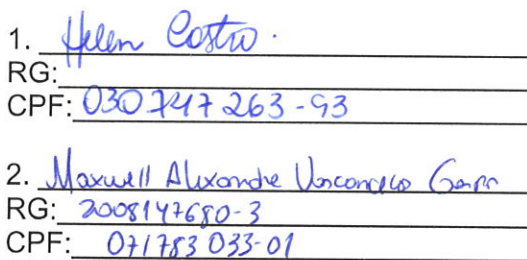 1. Helen Castro.
RG:
CPF: 030 747 263-93
2. Maxwell Alexandre Vasconcelos
RG: 2008147680-3
CPF: 071783 033-01